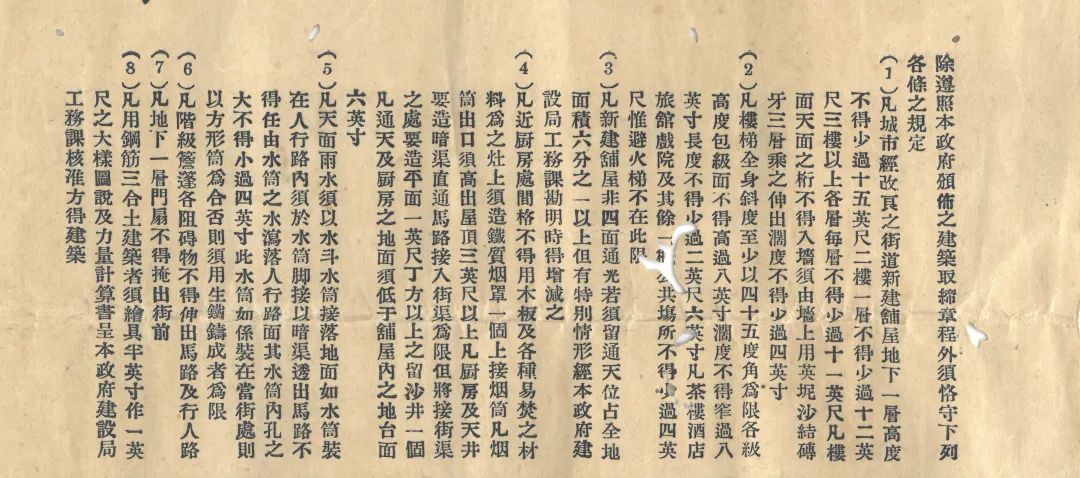 除遵照本政府頒佈之建築取締章程外須恪守下列
各條之規定
(1)凡城市經改良之街道新建舖屋地下一層高度
不得少過十五英尺二樓一層不得少過十二英
尺三樓以上各層每層不得少過十一英尺凡樓
面天面之桁不得入墻須由墻上用英坭沙結磚
牙三層乘之伸出濶度不得少過四英寸
(2)凡樓梯全身斜度至少以四十五度角爲限各級
高度包級面不得高過八英寸濶度不得窄過八
英寸長度不得少過二英尺六英寸凡茶樓酒店
旅館戲院及其餘一共塲所不得少過四英
尺惟避火梯不在此限
(3)凡新建舖屋非四面通光若須留通天位占全地
面積六分之一以上但有特別情形經本政府建
設局工務課勘明時得增減之
(4)凡近厨房處間格不得用木板及各種易焚之材
料爲之灶上須造鐵質烟罩一個上接烟筒凡烟
筒出口須高出屋頂三英尺以上凡厨房及天井
要造暗渠直通馬路接入街渠爲限但將接街渠
之處要造平面一英尺丁方以上之留沙井一個
凡通天及厨房之地面須低于舖屋內之地台面
六英寸
(5)凡天面雨水須以水斗水筒接落地面如水筒裝
在人行路內須於水筒脚接以暗渠透出馬路不
得任由水筒之水瀉落人行路面其水筒內孔之
大不得小過四英寸此水筒如係裝在當街處則
以方形筒爲合否則須用生鐵鑄成者爲限
(6)凡階級簷蓬各阻碍物不得伸出馬路及行人路
(7)凡地下一層門扇不得掩出街前
(8)凡用鋼筋三合土建築者須繪具半英寸作一英
尺之大樣圖說及力量計算書呈本政府建設局
工務課核准方得建築